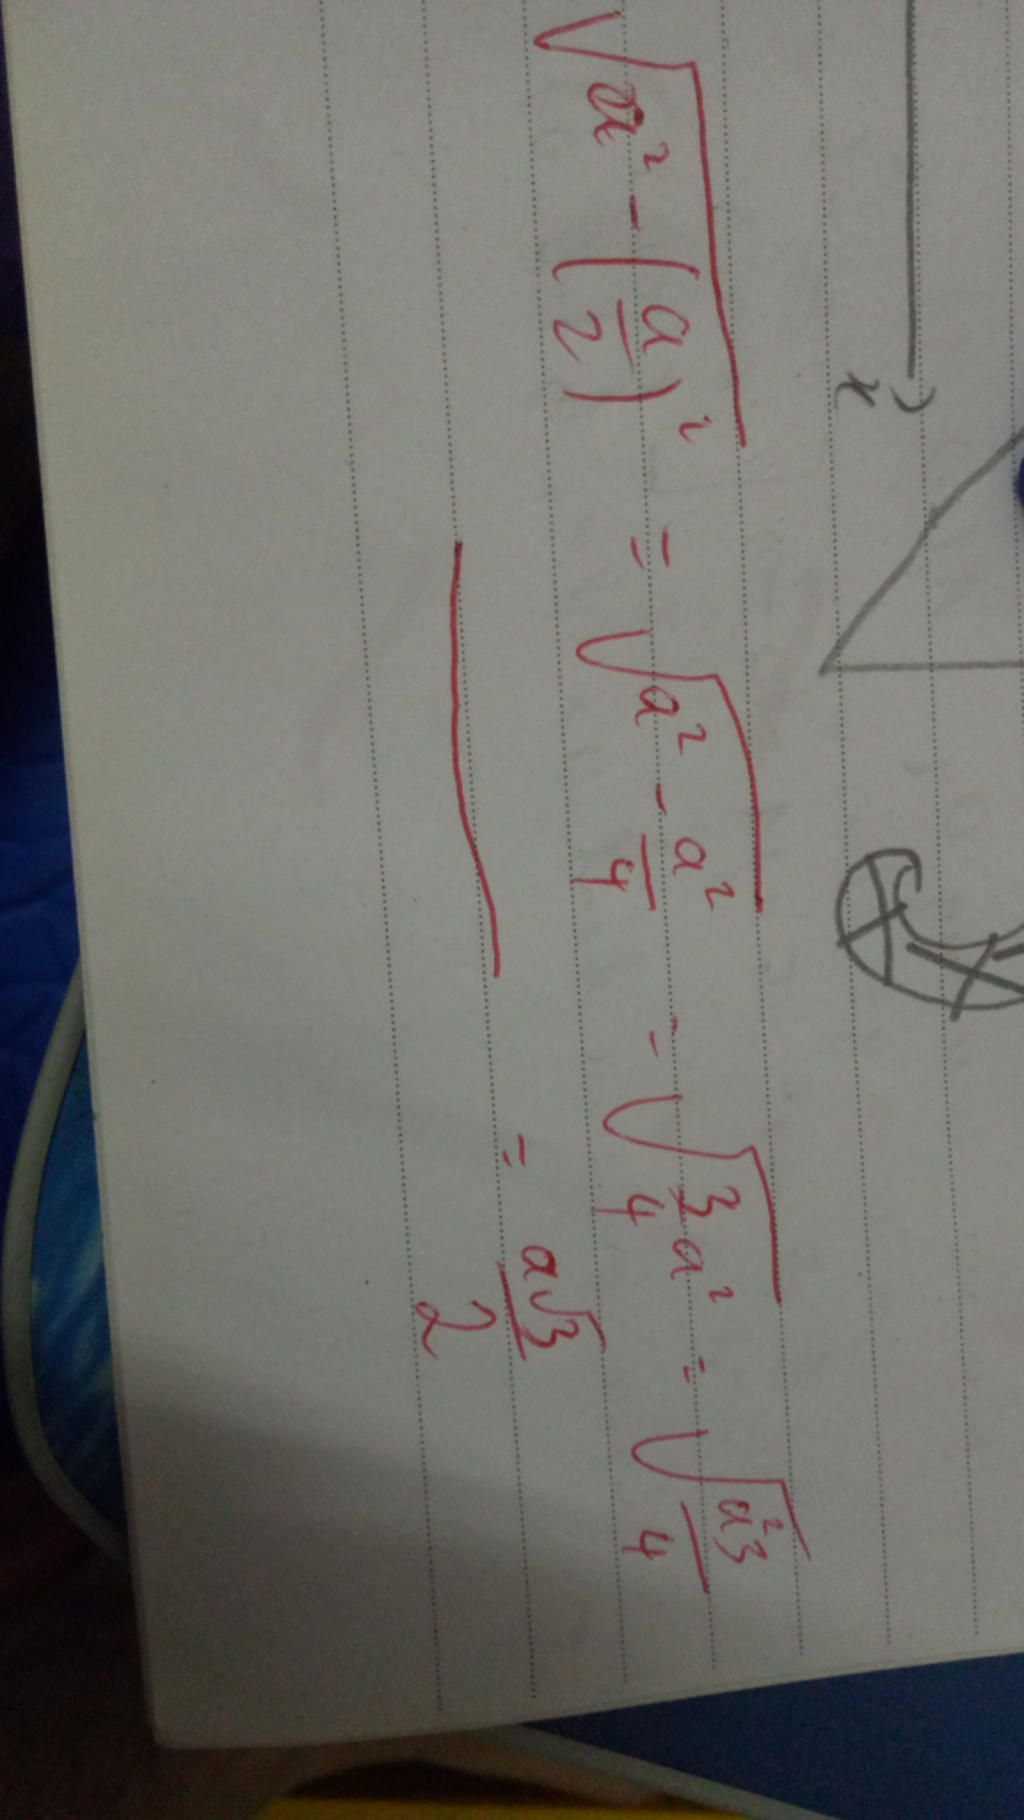 x
√(a² - (a/2)²) = √(a² - a²/4) = √(3/4 a²) = √(a²3/4)
= a√3/2